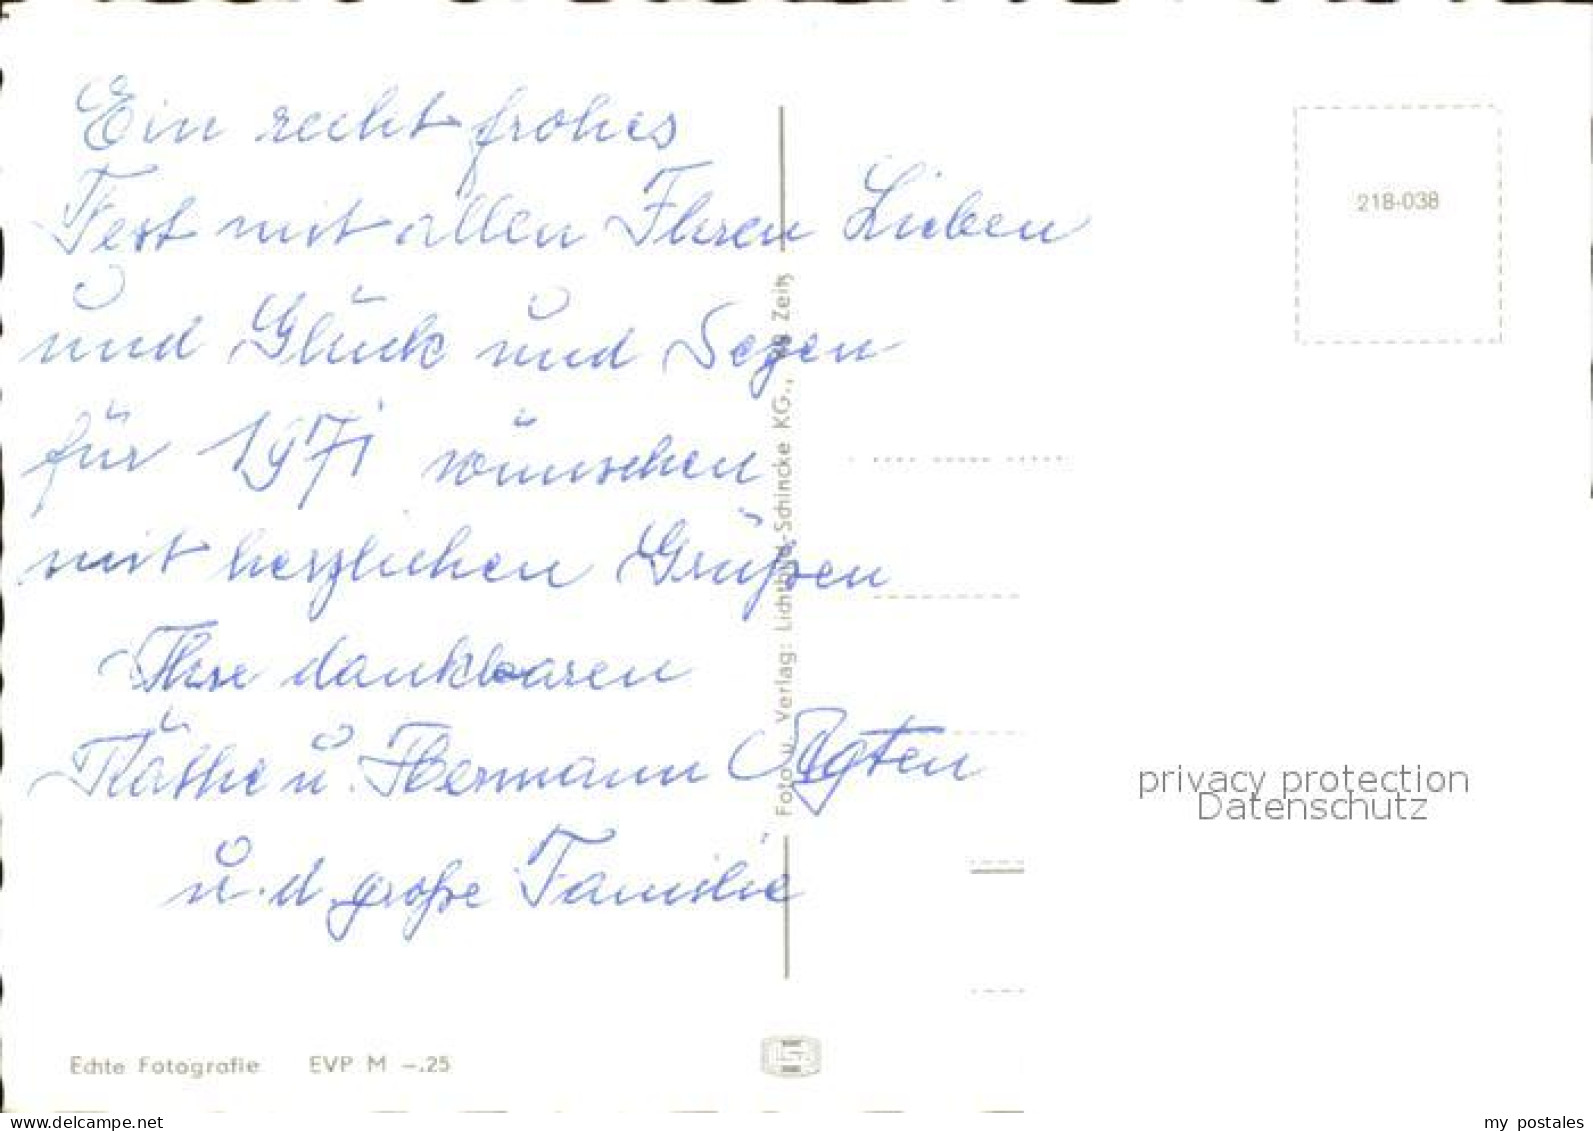 Ein recht frohes
Fest mit allen Ihren Lieben
und Glück und Segen
für 1971 wünschen
mit herzlichen Grüßen
Ihre dankbaren
Käthe u. Hermann Agten
u. d. große Familie
Foto u. Verlag: Lichtbild-Schincke KG., Zeitz
218-038
privacy protection
Datenschutz
Echte Fotografie EVP M –.25
www.delcampe.net
my_postales